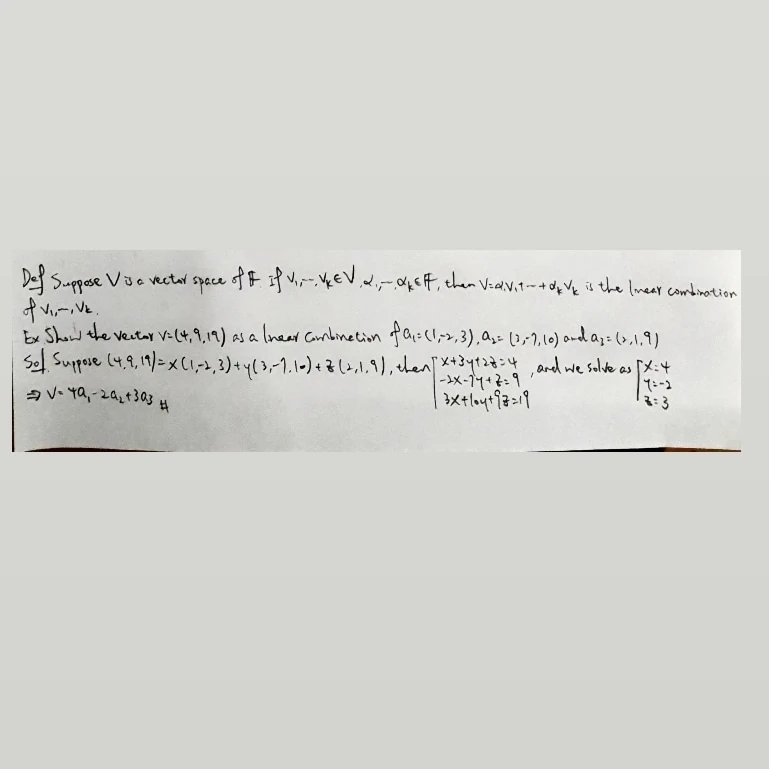 Def Suppose V is a vector space of 𝔽 If v₁,⋯,vₖ∈V, α₁,⋯,αₖ∈𝔽, then V=α₁v₁+⋯+αₖvₖ is the linear combination
of v₁,⋯,vₖ.
Ex Show the vector v=(4,9,19) as a linear combination of a₁=(1,-2,3), a₂=(3,-7,10) and a₃=(2,1,9)
Sol Suppose (4,9,19)=x(1,-2,3)+y(3,-7,10)+z(2,1,9), then x+3y+2z=4, and we solve as x=4
-2x-7y+z=9 y=-2
3x+10y+9z=19 z=3
⇒ v=4a₁-2a₂+3a₃ #